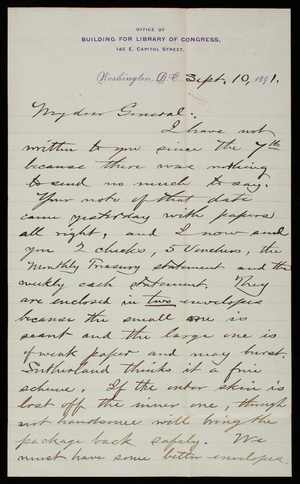 OFFICE OF
BUILDING FOR LIBRARY OF CONGRESS,
145 E. CAPITOL STREET,
Washington, D.C. Sept. 10, 1891.
My dear General:
I have not
written to you since the 7th
because there was nothing
to send no much to say.
Your note of that date
came yesterday with papers
all right, and I now send
you 2 checks, 5 Vouchers, the
Monthly Treasury statement and the
weekly cash statement. They
are enclosed in two envelopes
because the small one is
scant and the large one is
of weak paper and may burst.
Sutherland thinks it a fine
scheme. If the outer skin is
lost off the inner one, though
not handsome will bring the
package back safely. We
must have some better envelopes.